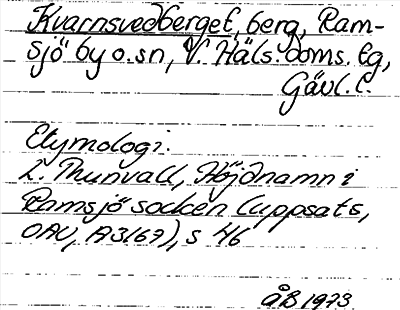 Kvarnsvedberget, berg, Ram-
sjö by o. sn, V. Häls. doms. lg,
Gävl. l.
Etymologi.
L. Thunvall, Höjdnamn i
Ramsjö socken (uppsats,
OAU, A3169), s 46
ÅB 1973